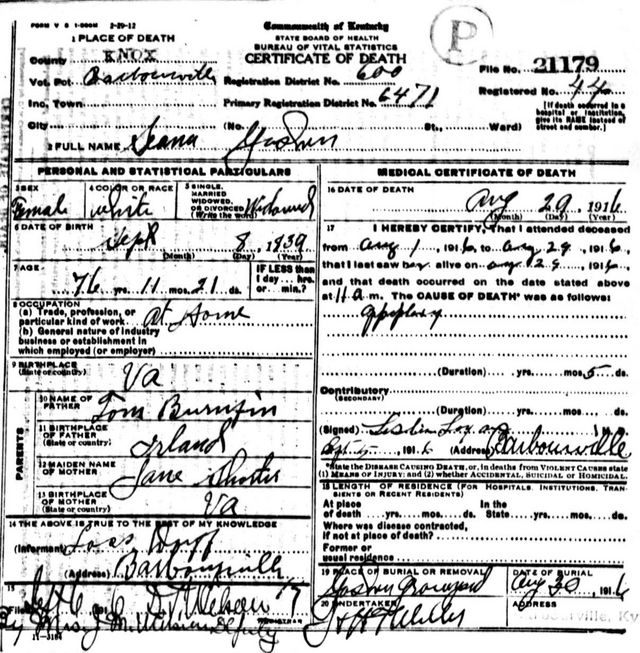 FORM V S 1-500M 2-29-12
Commonwealth of Kentucky
P
1 PLACE OF DEATH
STATE BOARD OF HEALTH
BUREAU OF VITAL STATISTICS
County KNOX
CERTIFICATE OF DEATH
Vot. Pct. Barbourville Registration District No. 600 File No. 21179
Inc. Town Primary Registration District No. 6471 Registered No. 44
City (No. St., Ward) [If death occurred in a hospital or institution, give its NAME instead of street and number.]
2 FULL NAME
PERSONAL AND STATISTICAL PARTICULARS
3 SEX Female
4 COLOR OR RACE white
5 SINGLE, MARRIED WIDOWED, OR DIVORCED (Write the word) Widowed
6 DATE OF BIRTH
Sept 8, 1839
(Month) (Day) (Year)
7 AGE
76 yrs. 11 mos. 21 ds.
IF LESS than 1 day... hrs. or... min.?
8 OCCUPATION
(a) Trade, profession, or particular kind of work At Home
(b) General nature of industry business or establishment in which employed (or employer)
9 BIRTHPLACE (State or country) Va
PARENTS
10 NAME OF FATHER Tom
11 BIRTHPLACE OF FATHER (State or country) Irland
12 MAIDEN NAME OF MOTHER Jane
13 BIRTHPLACE OF MOTHER (State or country) Va
14 THE ABOVE IS TRUE TO THE BEST OF MY KNOWLEDGE
(Informant)
(Address) Barbourville
15
Filed
REGISTRAR
By Mrs. J. M. Deputy
11-3184
MEDICAL CERTIFICATE OF DEATH
16 DATE OF DEATH
Aug 29, 1916
(Month) (Day) (Year)
17 I HEREBY CERTIFY, That I attended deceased
from Aug 1, 1916, to Aug 29, 1916,
that I last saw her alive on Aug 29, 1916,
and that death occurred on the date stated above
at 11 a m. The CAUSE OF DEATH* was as follows:
(Duration) yrs. mos. 5 ds.
Contributory
(SECONDARY)
(Duration) yrs. mos. ds.
(Signed) M. D.
191 (Address) Barbourville
*State the DISEASE CAUSING DEATH, or, in deaths from VIOLENT CAUSES state
(1) MEANS OF INJURY; and (2) whether ACCIDENTAL, SUICIDAL or HOMICIDAL.
18 LENGTH OF RESIDENCE (FOR HOSPITALS, INSTITUTIONS, TRANSIENTS OR RECENT RESIDENTS)
At place of death yrs. mos. ds. In the State yrs. mos. ds.
Where was disease contracted, if not at place of death?
Former or usual residence
19 PLACE OF BURIAL OR REMOVAL
DATE OF BURIAL
Aug 30, 1916
20 UNDERTAKER
ADDRESS
Barbourville, Ky